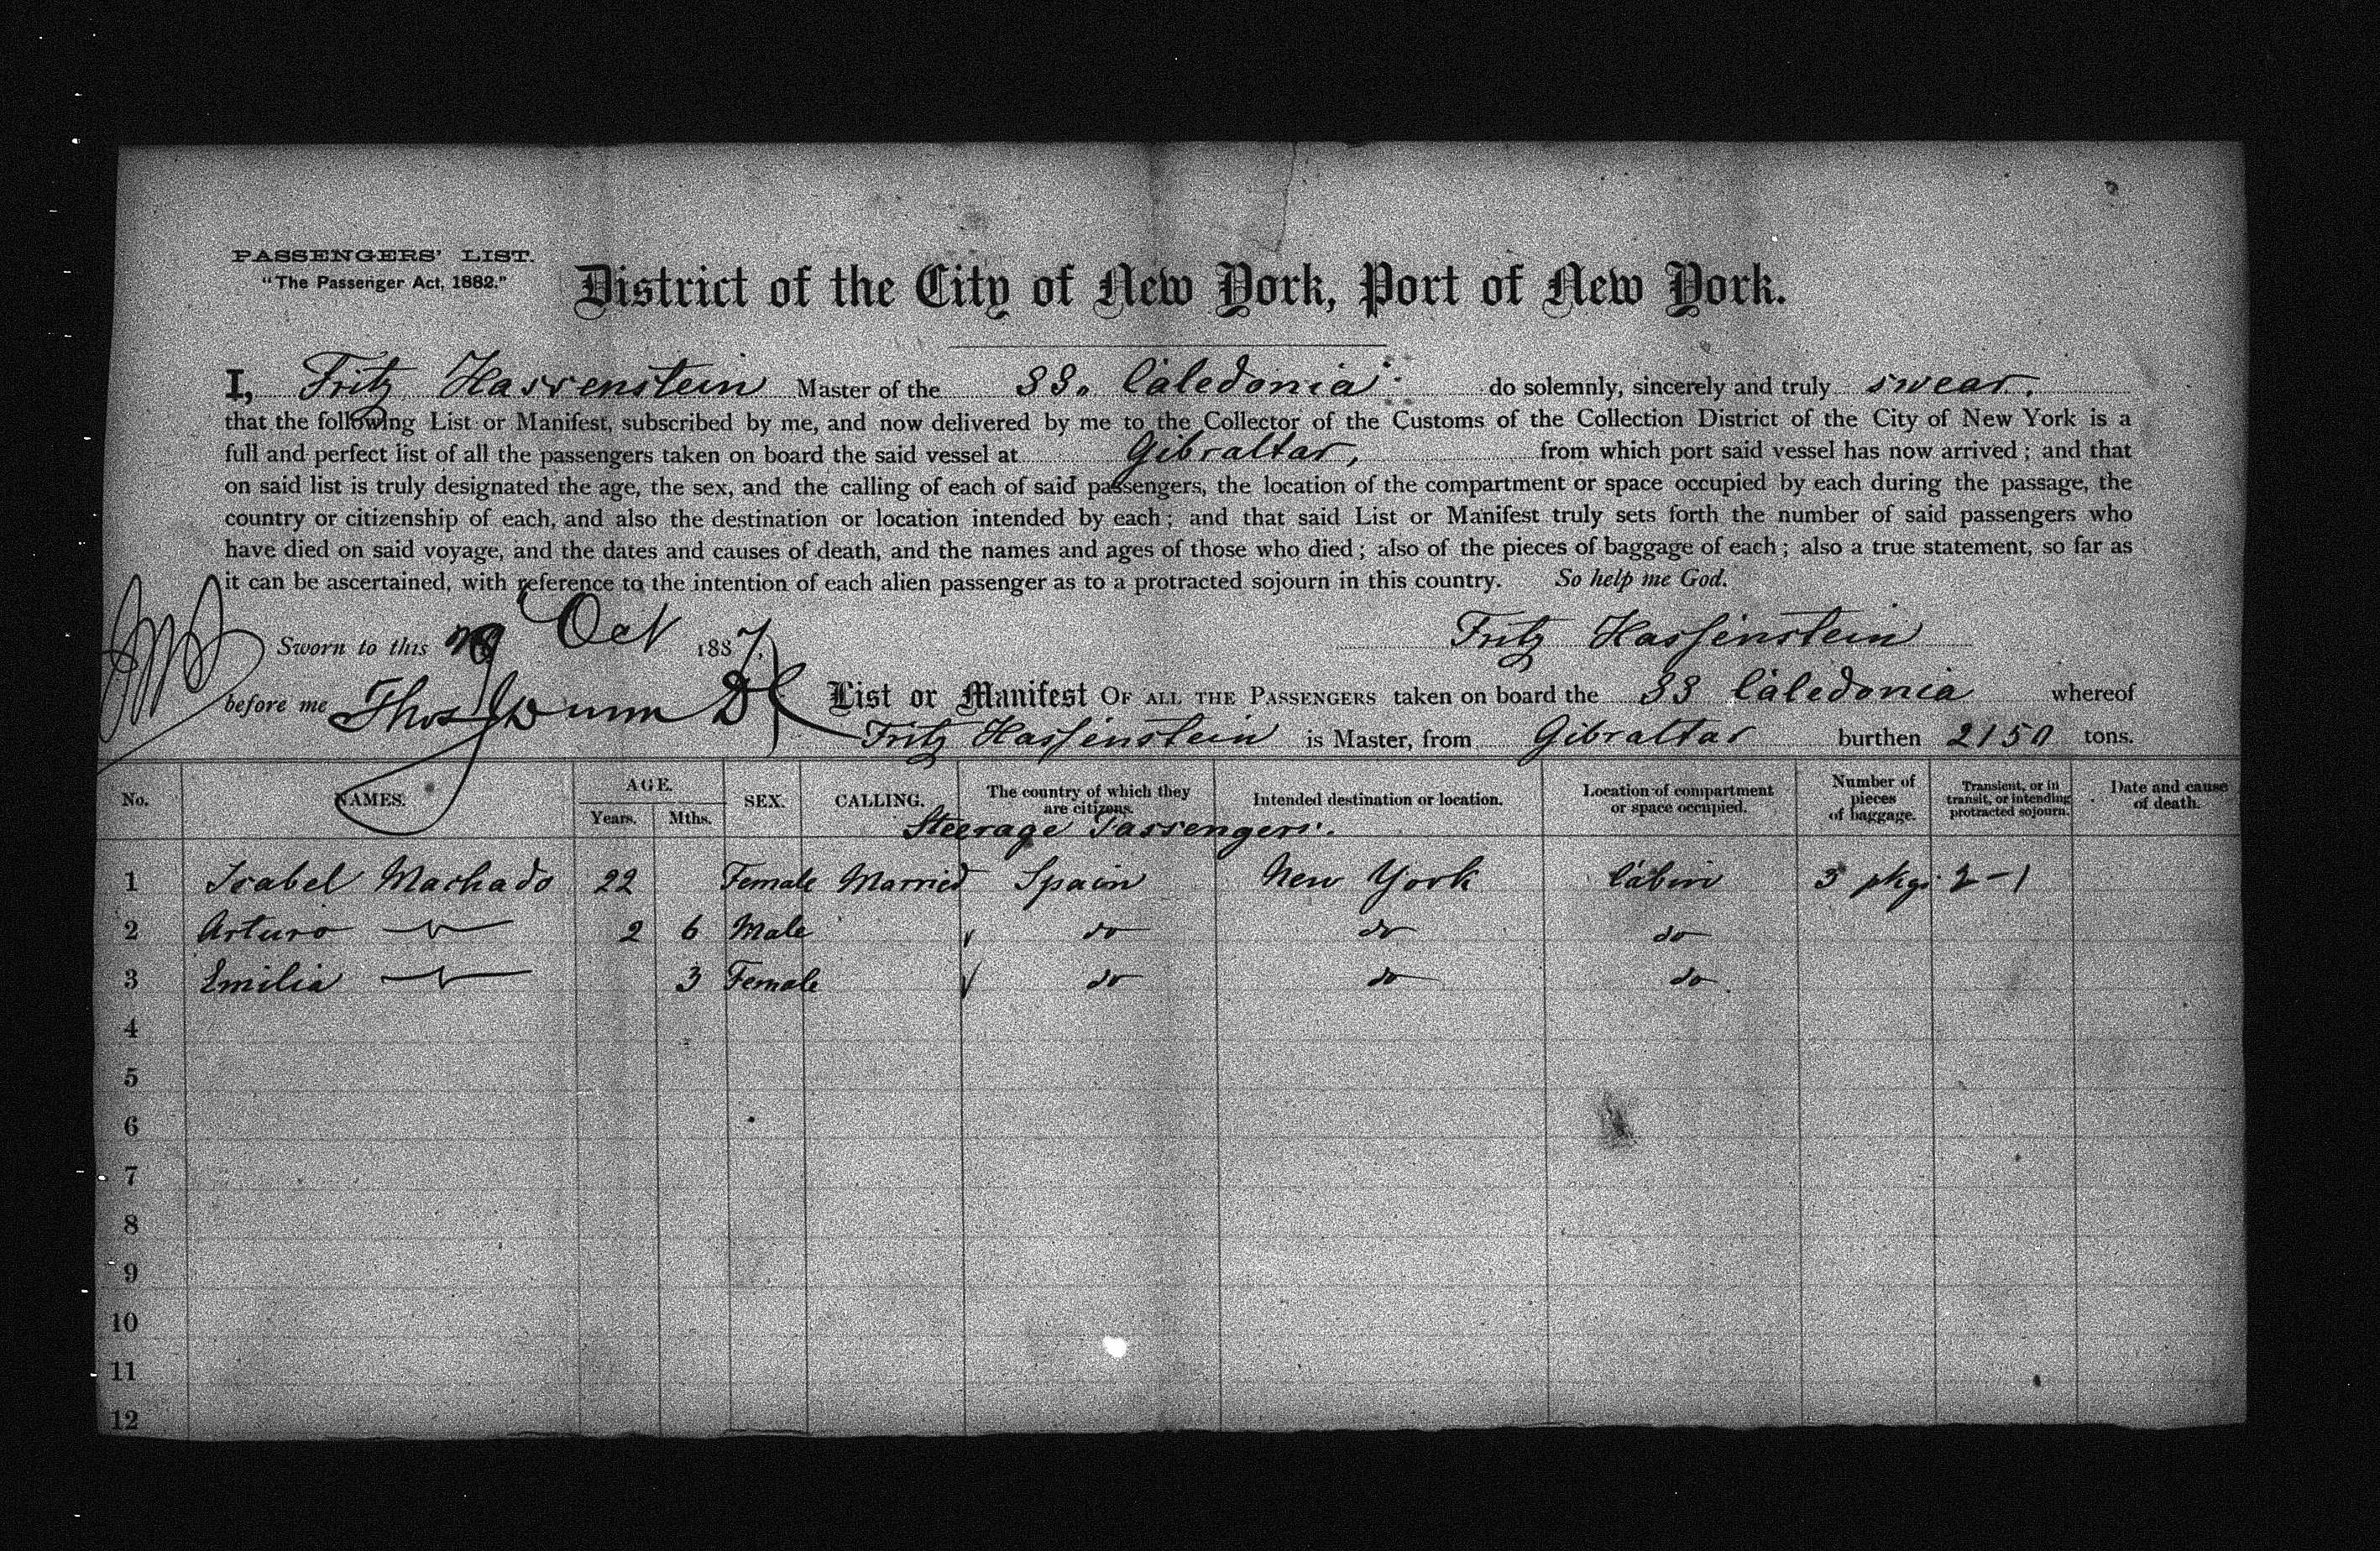 PASSENGERS' LIST.
"The Passenger Act, 1882."
District of the City of New York, Port of New York.
I, Fritz Hassenstein Master of the SS. Caledonia do solemnly, sincerely and truly swear.
that the following List or Manifest, subscribed by me, and now delivered by me to the Collector of the Customs of the Collection District of the City of New York is a
full and perfect list of all the passengers taken on board the said vessel at Gibraltar, from which port said vessel has now arrived; and that
on said list is truly designated the age, the sex, and the calling of each of said passengers, the location of the compartment or space occupied by each during the passage, the
country or citizenship of each, and also the destination or location intended by each; and that said List or Manifest truly sets forth the number of said passengers who
have died on said voyage, and the dates and causes of death, and the names and ages of those who died; also of the pieces of baggage of each; also a true statement, so far as
it can be ascertained, with reference to the intention of each alien passenger as to a protracted sojourn in this country. So help me God.
Sworn to this Oct 1887, Fritz Hassenstein
before me Thos J Dunn DC List or Manifest OF ALL THE PASSENGERS taken on board the SS Caledonia whereof
Fritz Hassenstein is Master, from Gibraltar burthen 2150 tons.
No. NAMES. AGE. Years. Mths. SEX. CALLING. The country of which they are citizens. Intended destination or location. Location of compartment or space occupied. Number of pieces of baggage. Transient, or in transit, or intending protracted sojourn. Date and cause of death.
Steerage Passengers.
1 Isabel Machado 22 Female Married Spain New York Cabin 3 pkgs 2-1
2 Arturo 2 6 Male do do do
3 Emilia 3 Female do do do
4
5
6
7
8
9
10
11
12